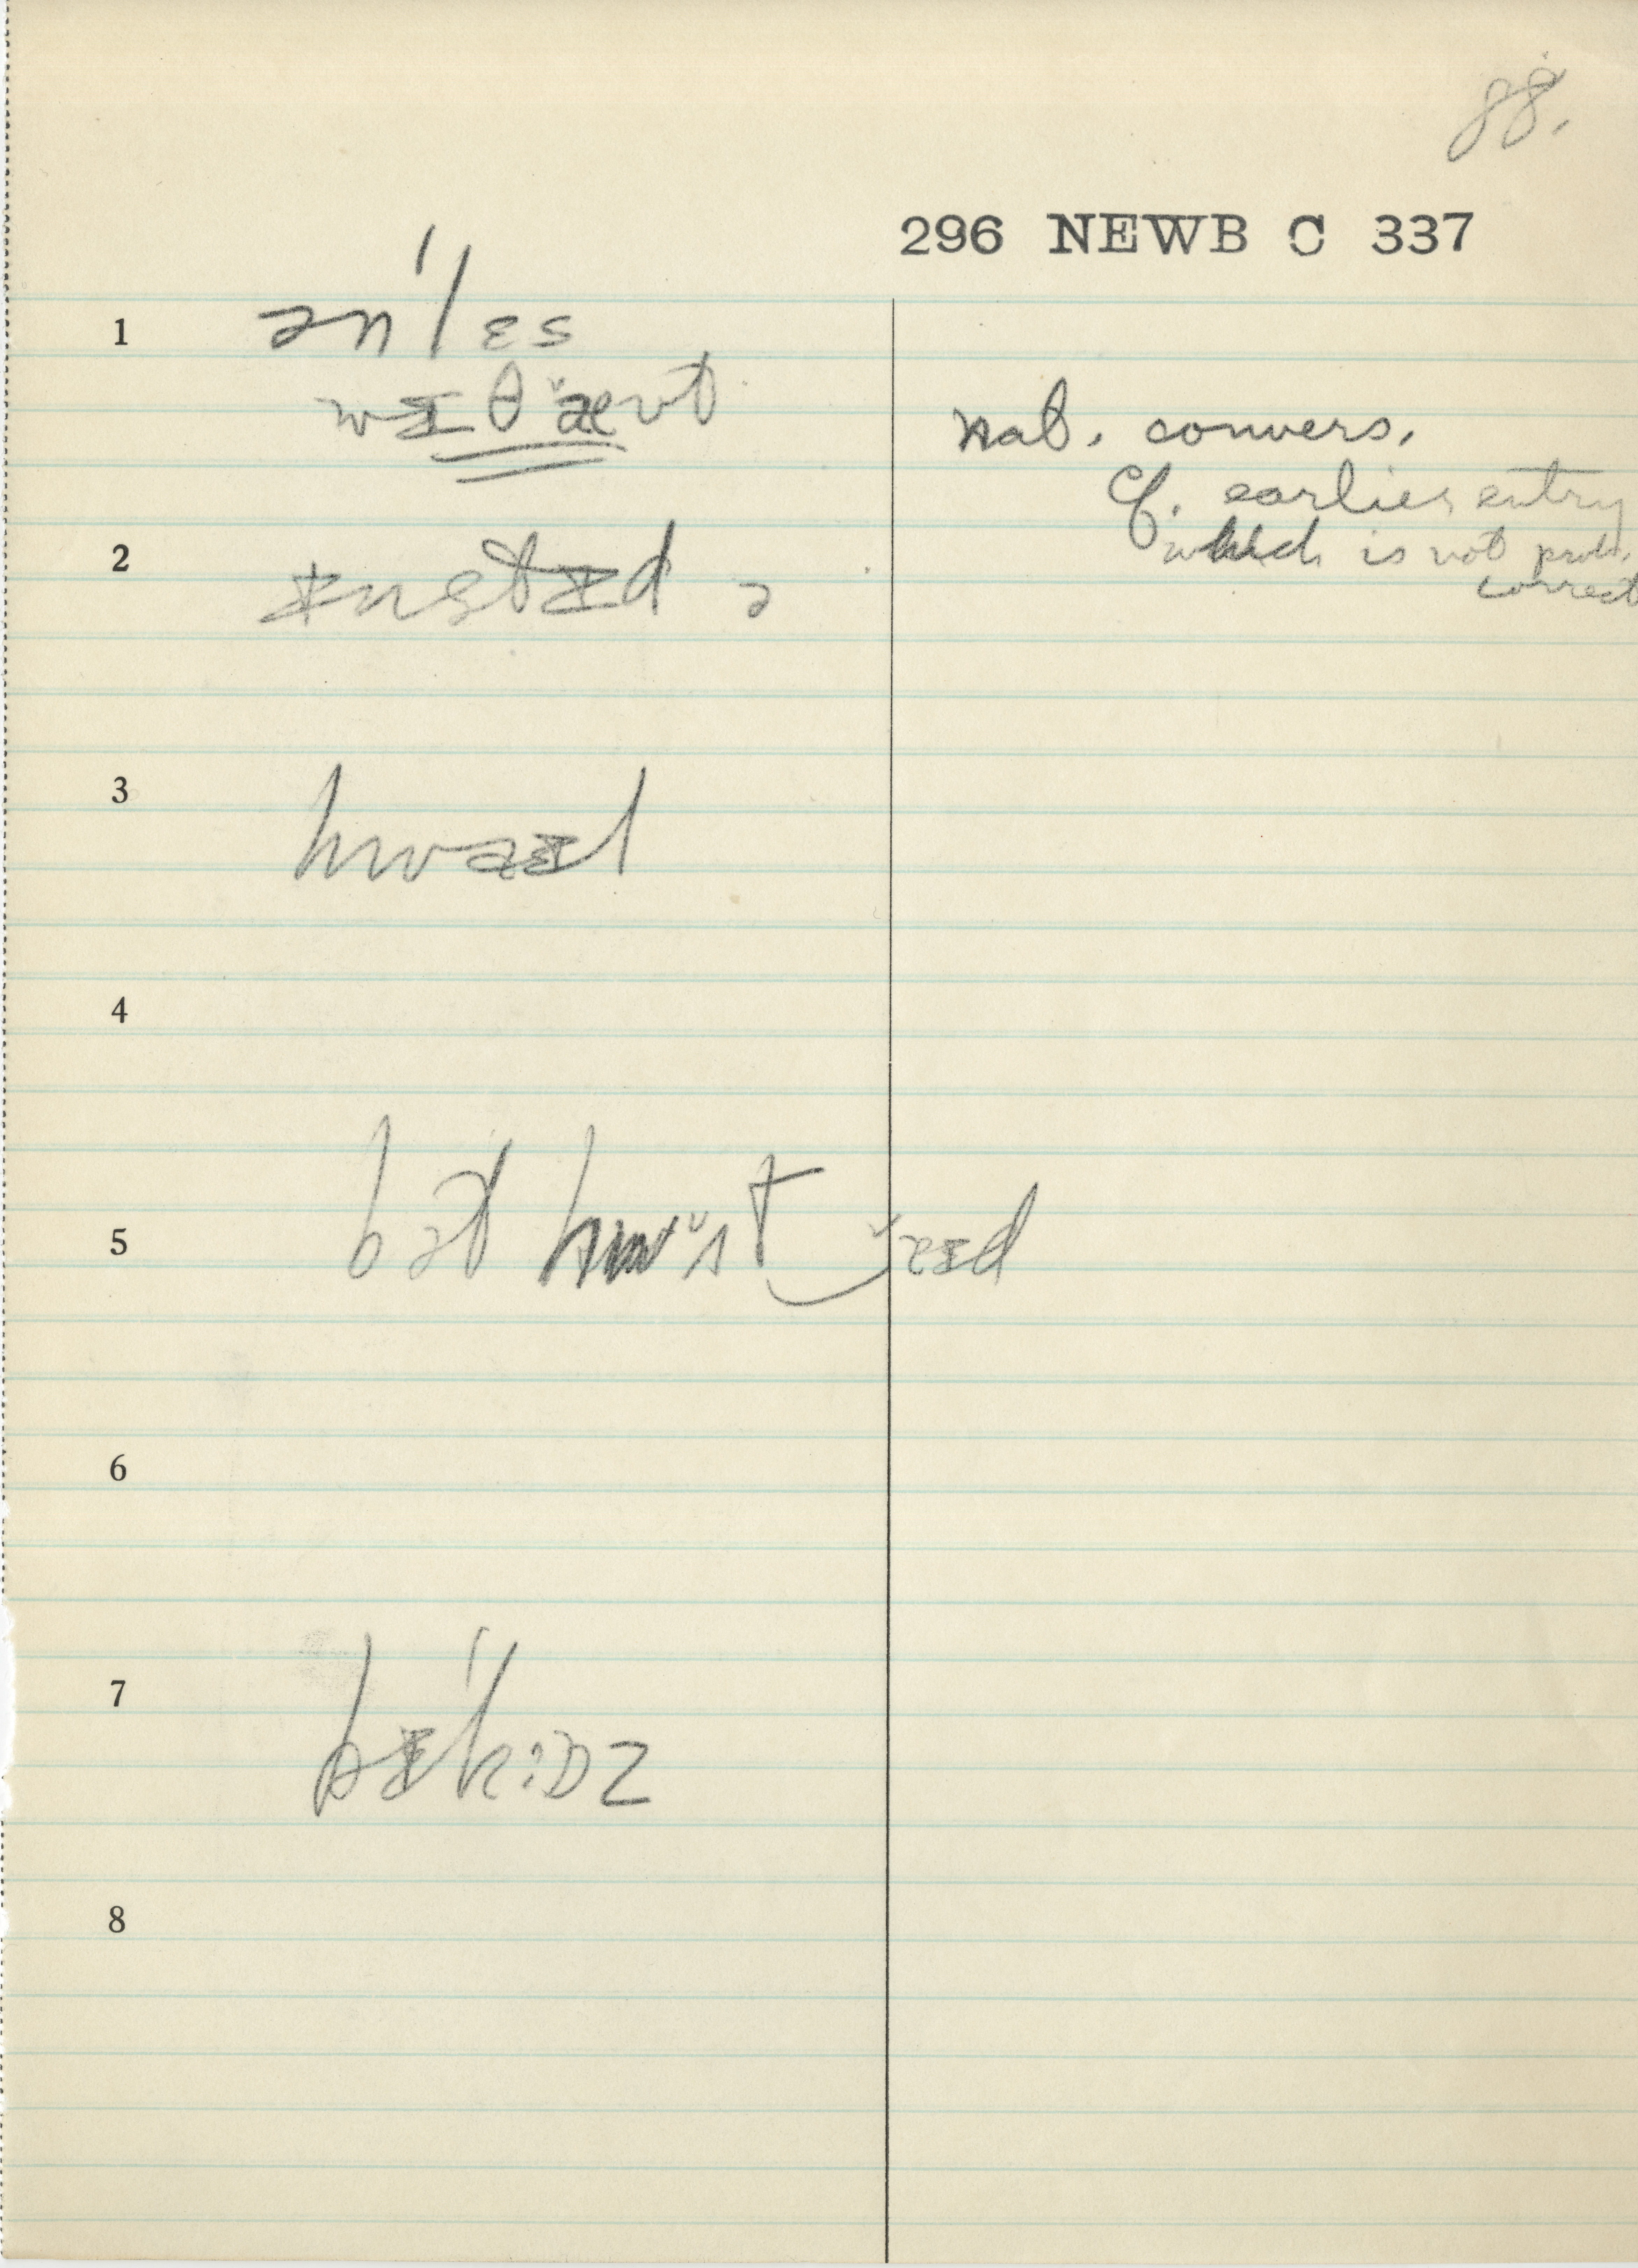 88.
296 NEWB C 337
1 ən'lɛs
wɪθæʊt
nat. convers.
Cf. earlier entry
which is not prob.
correct
2 ɪnstɪd ə
3 hwaɪl
4
5 bət
6
7
8